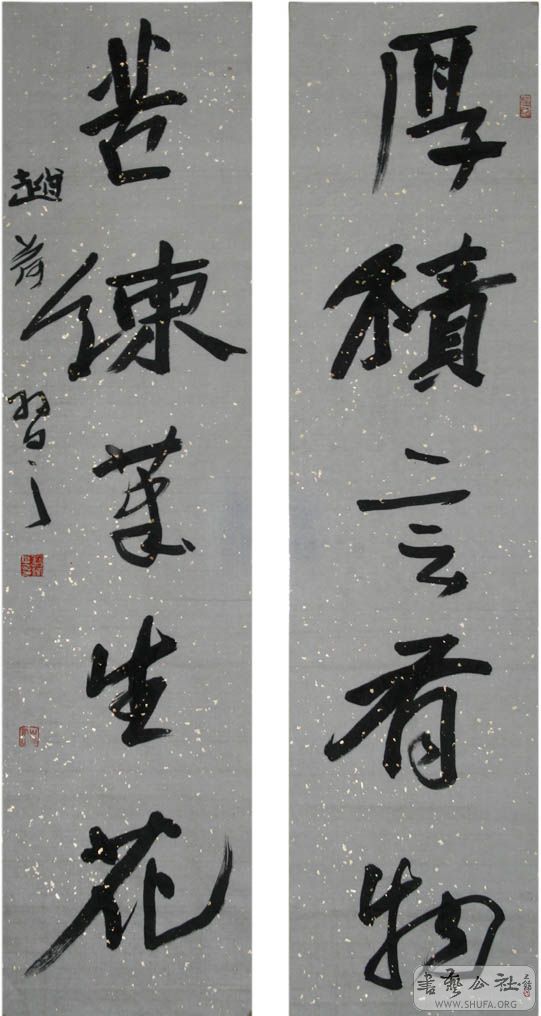 厚積言有物
苦練筆生花
趙荷習之
書藝公社
WWW.SHUFA.ORG